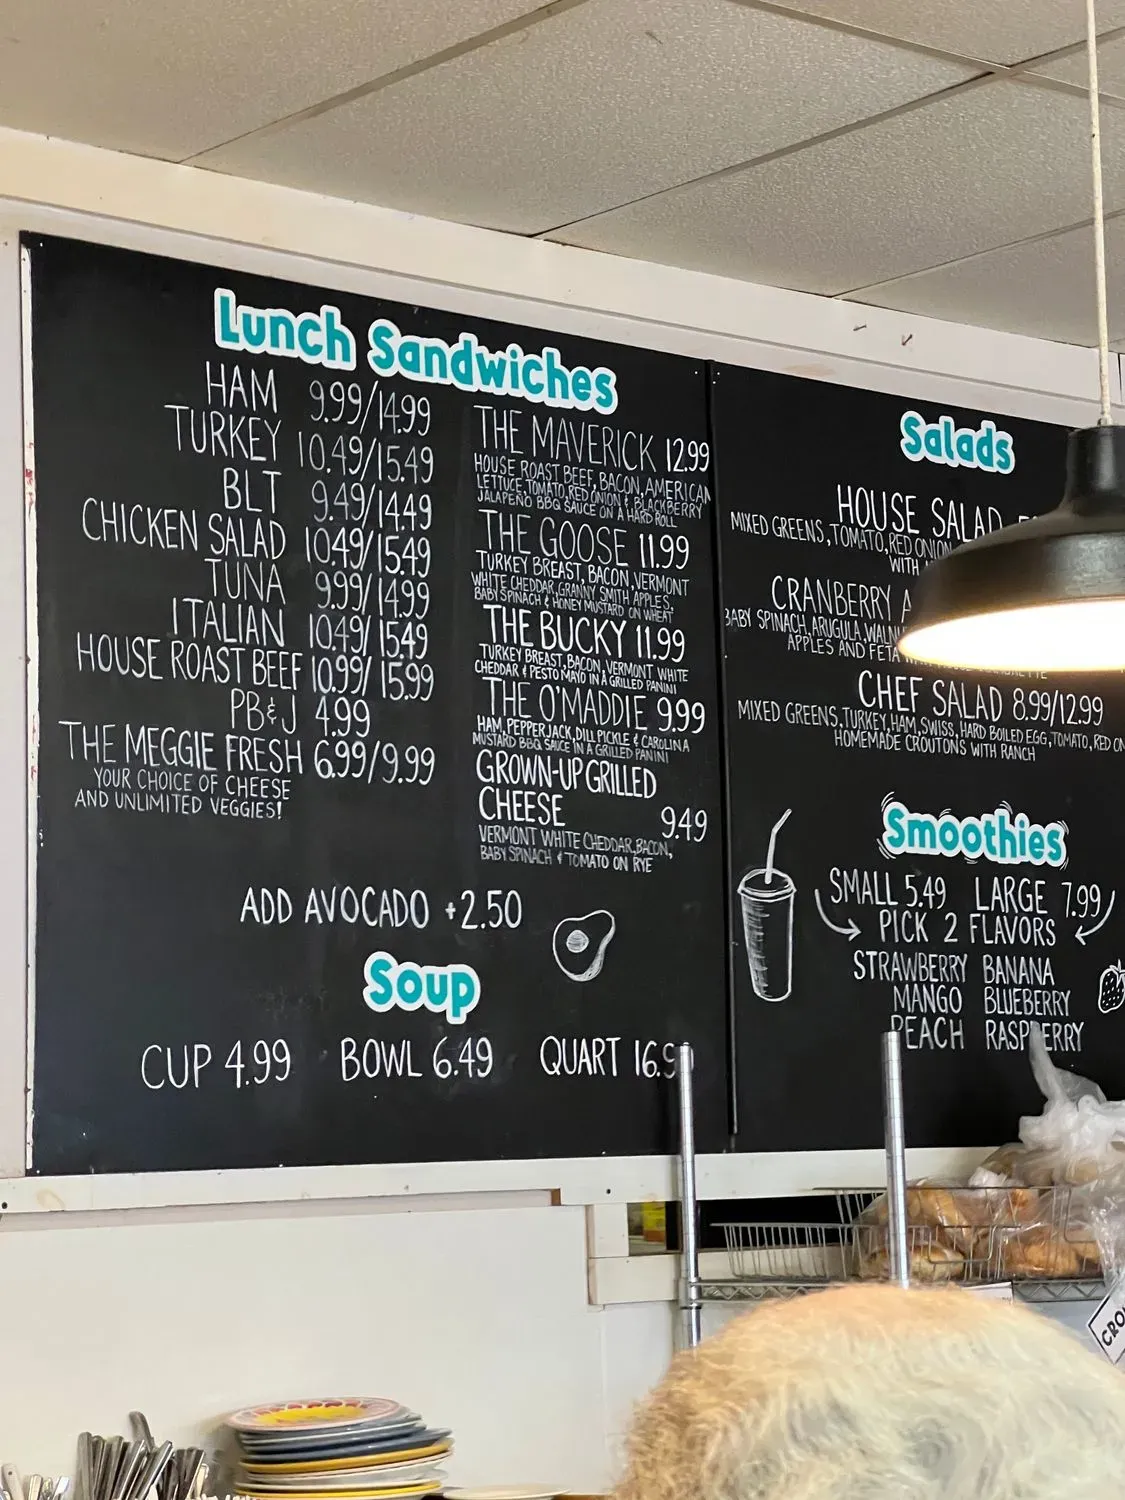 Lunch Sandwiches
HAM 9.99/14.99
TURKEY 10.49/15.49
BLT 9.49/14.49
CHICKEN SALAD 10.49/15.49
TUNA 9.99/14.99
ITALIAN 10.49/15.49
HOUSE ROAST BEEF 10.99/15.99
PB&J 4.99
THE MEGGIE FRESH 6.99/9.99
YOUR CHOICE OF CHEESE
AND UNLIMITED VEGGIES!
THE MAVERICK 12.99
HOUSE ROAST BEEF, BACON, AMERICAN
LETTUCE, TOMATO, RED ONION & BLACKBERRY
JALAPEÑO BBQ SAUCE ON A HARD ROLL
THE GOOSE 11.99
TURKEY BREAST, BACON, VERMONT
WHITE CHEDDAR, GRANNY SMITH APPLES,
BABY SPINACH & HONEY MUSTARD ON WHEAT
THE BUCKY 11.99
TURKEY BREAST, BACON, VERMONT WHITE
CHEDDAR & PESTO MAYO IN A GRILLED PANINI
THE O'MADDIE 9.99
HAM, PEPPERJACK, DILL PICKLE & CAROLINA
MUSTARD BBQ SAUCE IN A GRILLED PANINI
GROWN-UP GRILLED
CHEESE 9.49
VERMONT WHITE CHEDDAR, BACON,
BABY SPINACH & TOMATO ON RYE
ADD AVOCADO +2.50
Soup
CUP 4.99 BOWL 6.49 QUART 16.9
Salads
HOUSE SALAD
MIXED GREENS, TOMATO, RED ONION
WITH
CRANBERRY
BABY SPINACH, ARUGULA,
APPLES AND FETA
CHEF SALAD 8.99/12.99
MIXED GREENS, TURKEY, HAM, SWISS, HARD BOILED EGG, TOMATO, RED ON
HOMEMADE CROUTONS WITH RANCH
Smoothies
SMALL 5.49 LARGE 7.99
PICK 2 FLAVORS
STRAWBERRY BANANA
MANGO BLUEBERRY
PEACH RASPBERRY
CRO